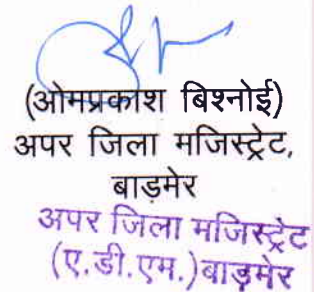 (ओमप्रकाश बिश्नोई)
अपर जिला मजिस्ट्रेट,
बाड़मेर
अपर जिला मजिस्ट्रेट
(ए.डी.एम.)बाड़मेर